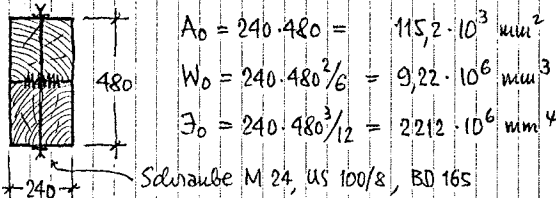 A₀ = 240·480 = 115,2·10³ mm²
480
W₀ = 240·480²/6 = 9,22·10⁶ mm³
J₀ = 240·480³/12 = 2212·10⁶ mm⁴
Schraube M 24, US 100/8, BD 165
240